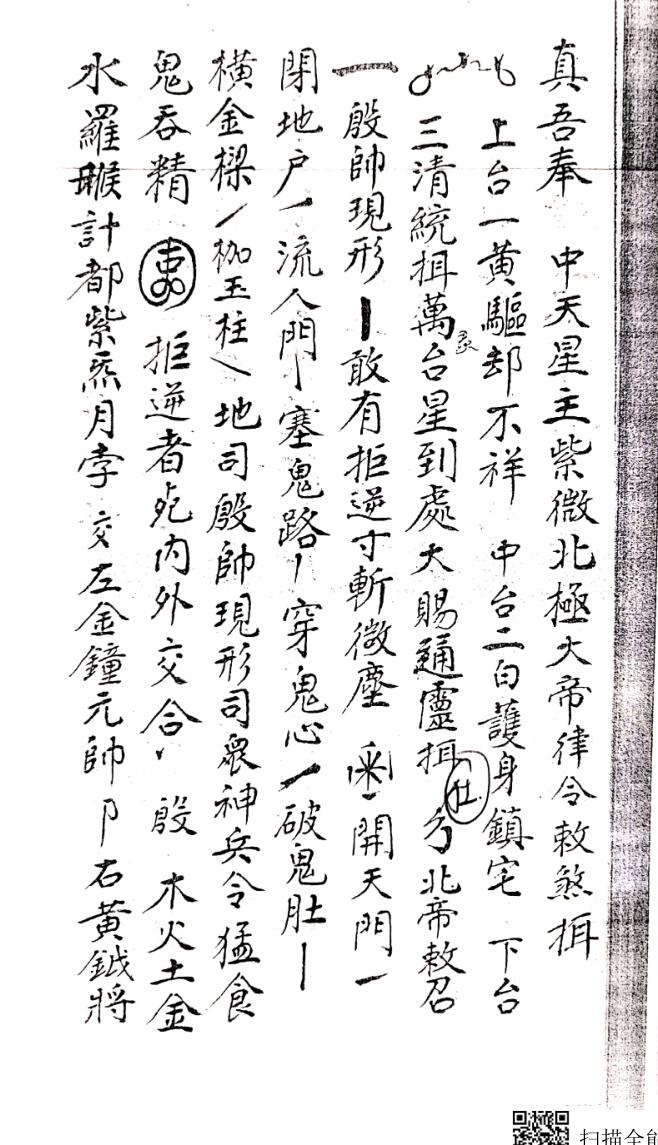 真吾奉 中天星主紫微北極大帝律令敕煞捛
上台一黃驅却不祥 中台二白護身鎮宅 下台
三清統捛萬台星到處大賜通靈捛 北帝敕召
殷帥現形 敢有拒逆寸斬微塵 開天門
閉地户 流人門 塞鬼路 穿鬼心 破鬼肚
橫金樑 枷玉柱 地司殷帥現形司眾神兵令猛食
鬼吞精 拒逆者死内外交合 殷 木火土金
水羅睺計都紫炁月孛交左金鐘元帥卩右黃鉞將
扫描全能